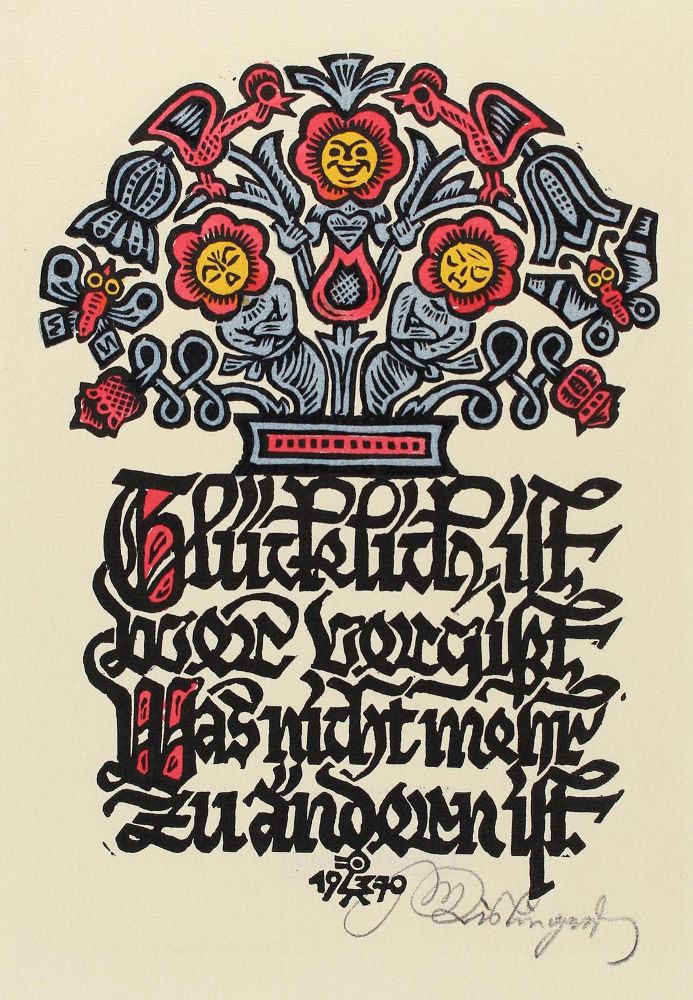 Glücklich, ist
wer vergißt,
Was nicht mehr
zu ändern ist.
1970